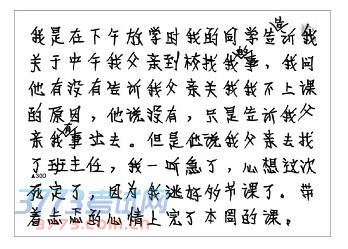 我是在下午放学时我的同学告诉我
关于中午我父亲到校找我事，我问
他有没有告诉我父亲关我我不上课
的原因，他说没有，只是告诉我父
亲我有事出去。但是他说我父亲去找
了班主任，我一听急了，心想这次
死定了，因为我逃好多节课了。带
着忐忑的心情上完了本周的课。
▲300
3773考试网